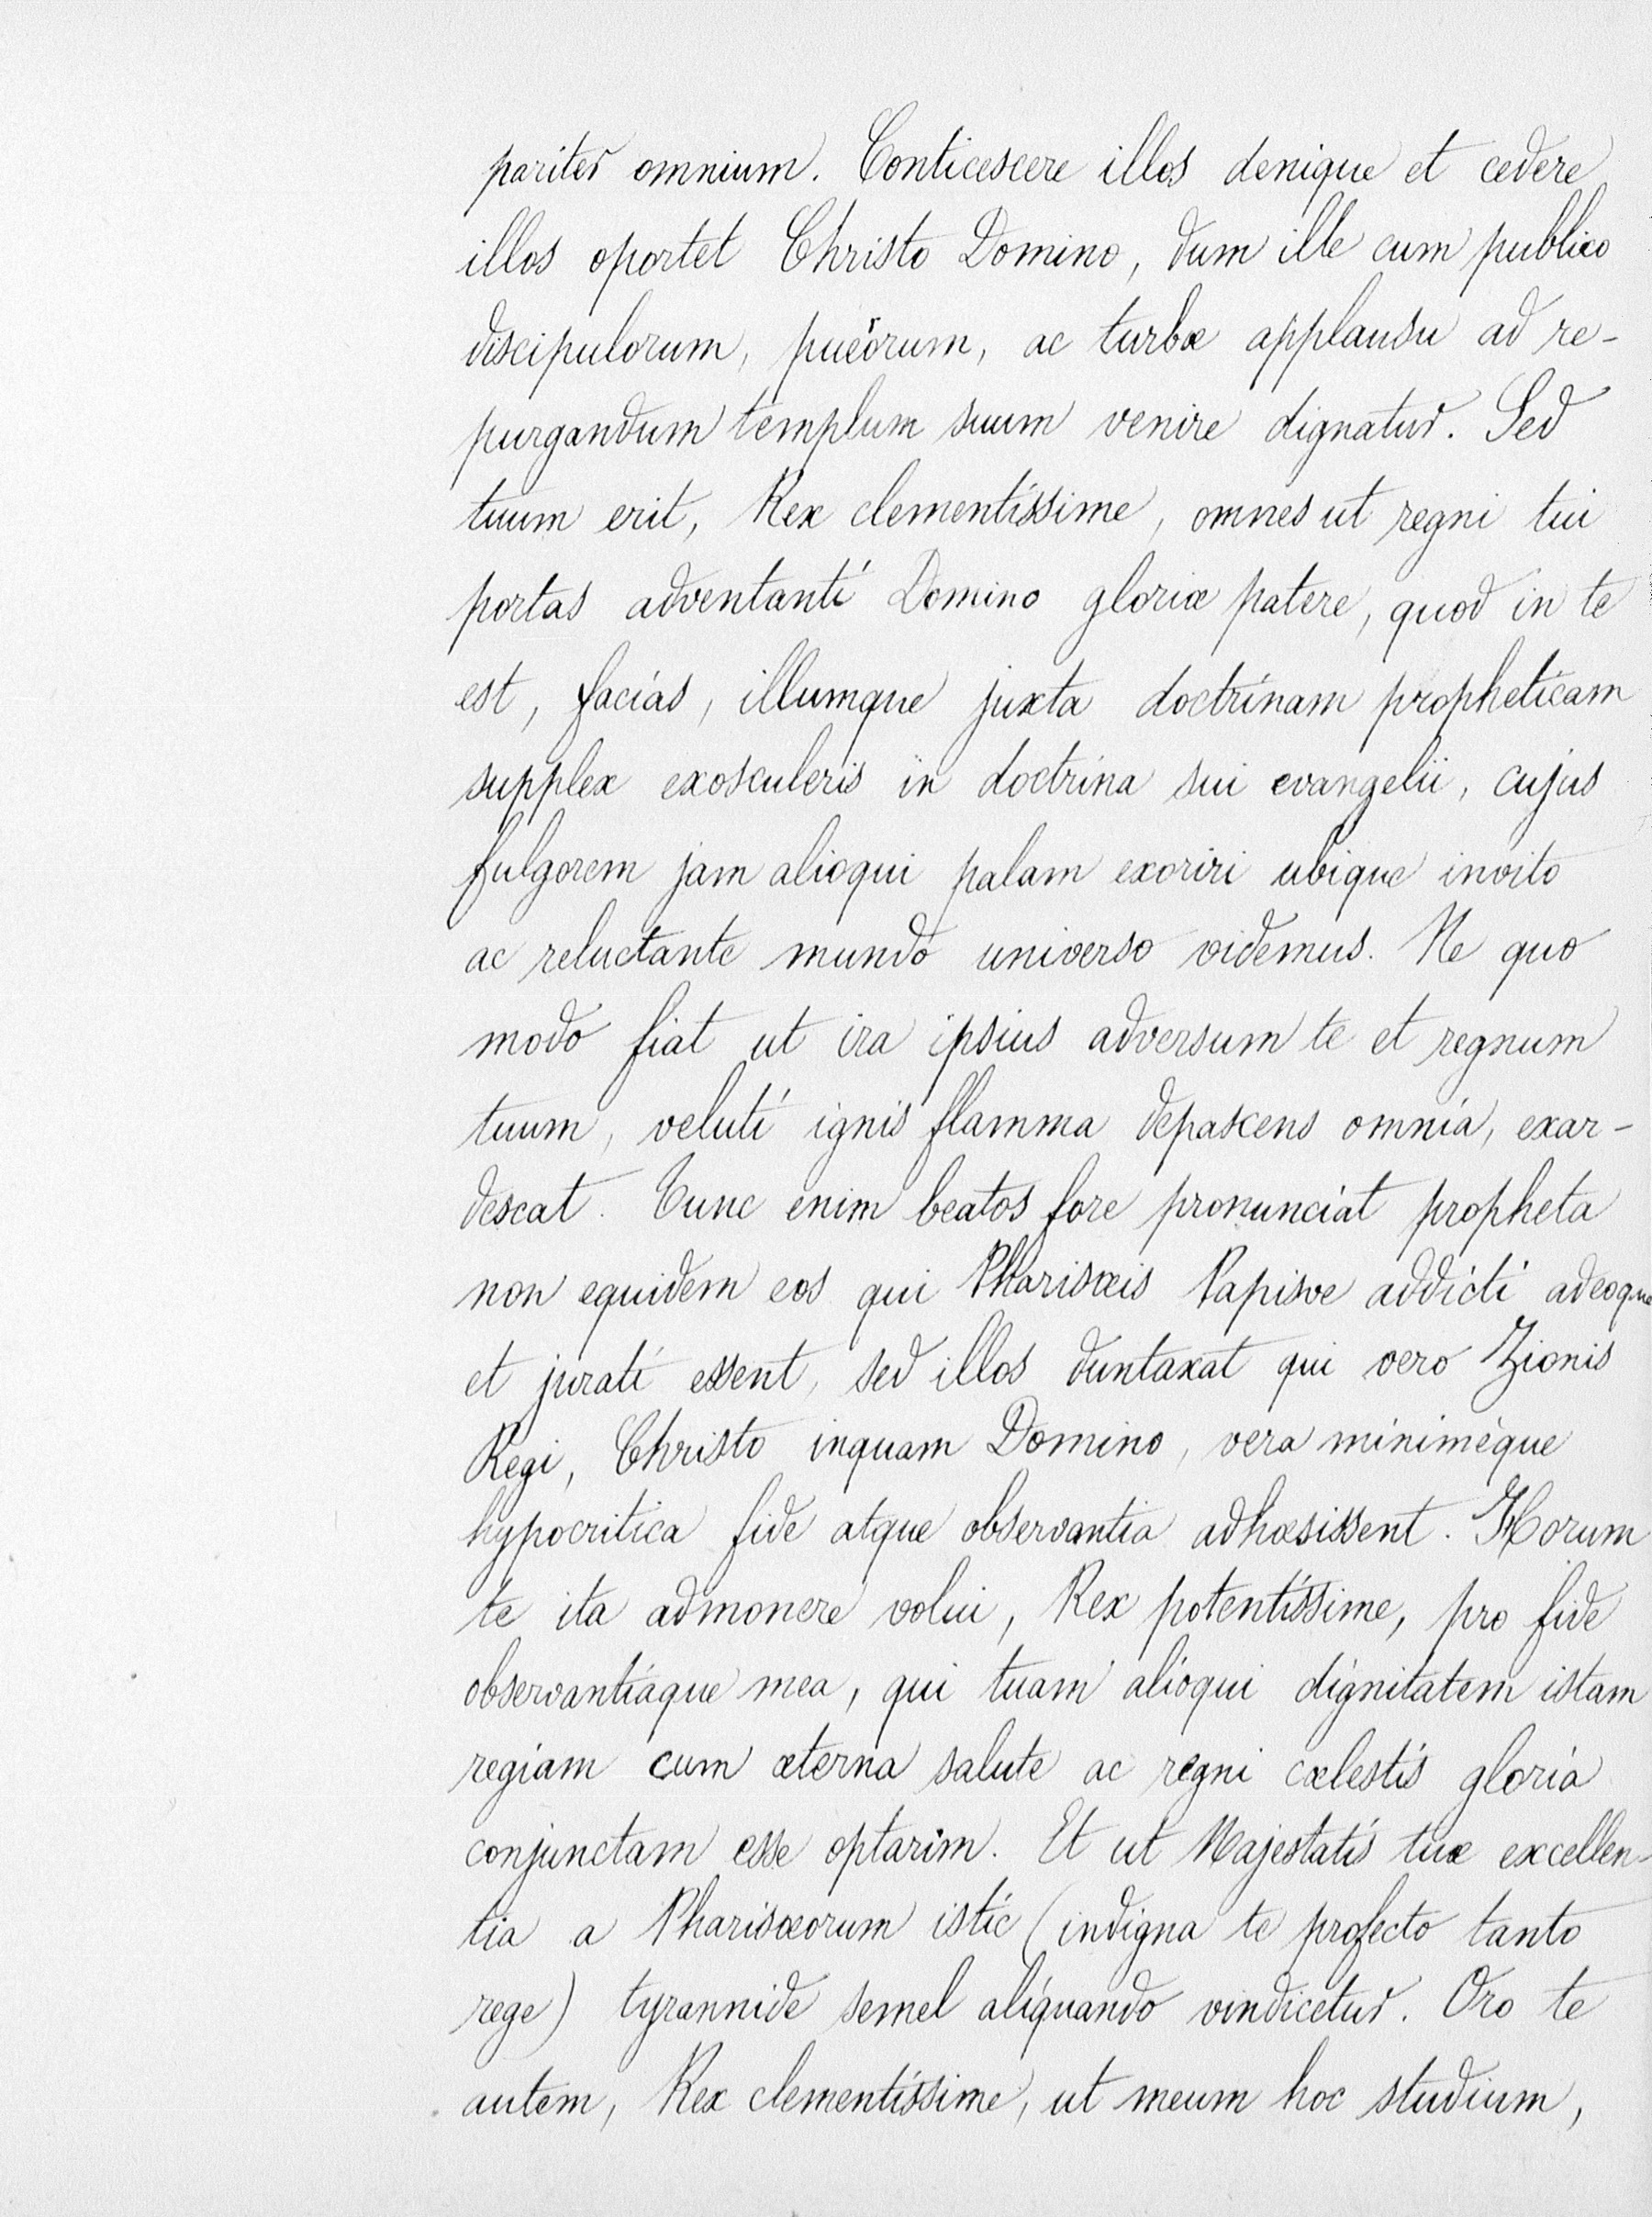 pariter omnium. Conticescere illos denique et cedere
illos oportet Christo Domino, dum ille cum publico
discipulorum, puerorum, ac turbæ applausu ad re-
purgandum templum suum venire dignatur. Sed
tuum erit, Rex clementissime, omnes ut regni tui
portas adventanti Domino gloriæ patere, quod in te
est, facias, illumque juxta doctrinam propheticam
supplex exosculeris in doctrina sui evangelii, cujus
fulgorem jam alioqui palam exoriri ubique invito
ac reluctante mundo universo videmus. Ne quo
modo fiat ut ira ipsius adversum te et regnum
tuum, veluti ignis flamma depascens omnia, exar-
descat. Tunc enim beatos fore pronunciat propheta
non equidem eos qui Pharisæis Papisve addicti adeoque
et jurati essent, sed illos duntaxat qui vero Zionis
Regi, Christo inquam Domino, vera minimèque
hypocritica fide atque observantia adhæsissent. Horum
te ita admonere volui, Rex potentissime, pro fide
observantiaque mea, qui tuam alioqui dignitatem istam
regiam cum æterna salute ac regni cœlestis gloria
conjunctam esse optarim. Et ut Majestatis tuæ excellen-
tia a Pharisæorum istic (indigna te profecto tanto
rege) tyrannide semel aliquando vindicetur. Oro te
autem, Rex clementissime, ut meum hoc studium,